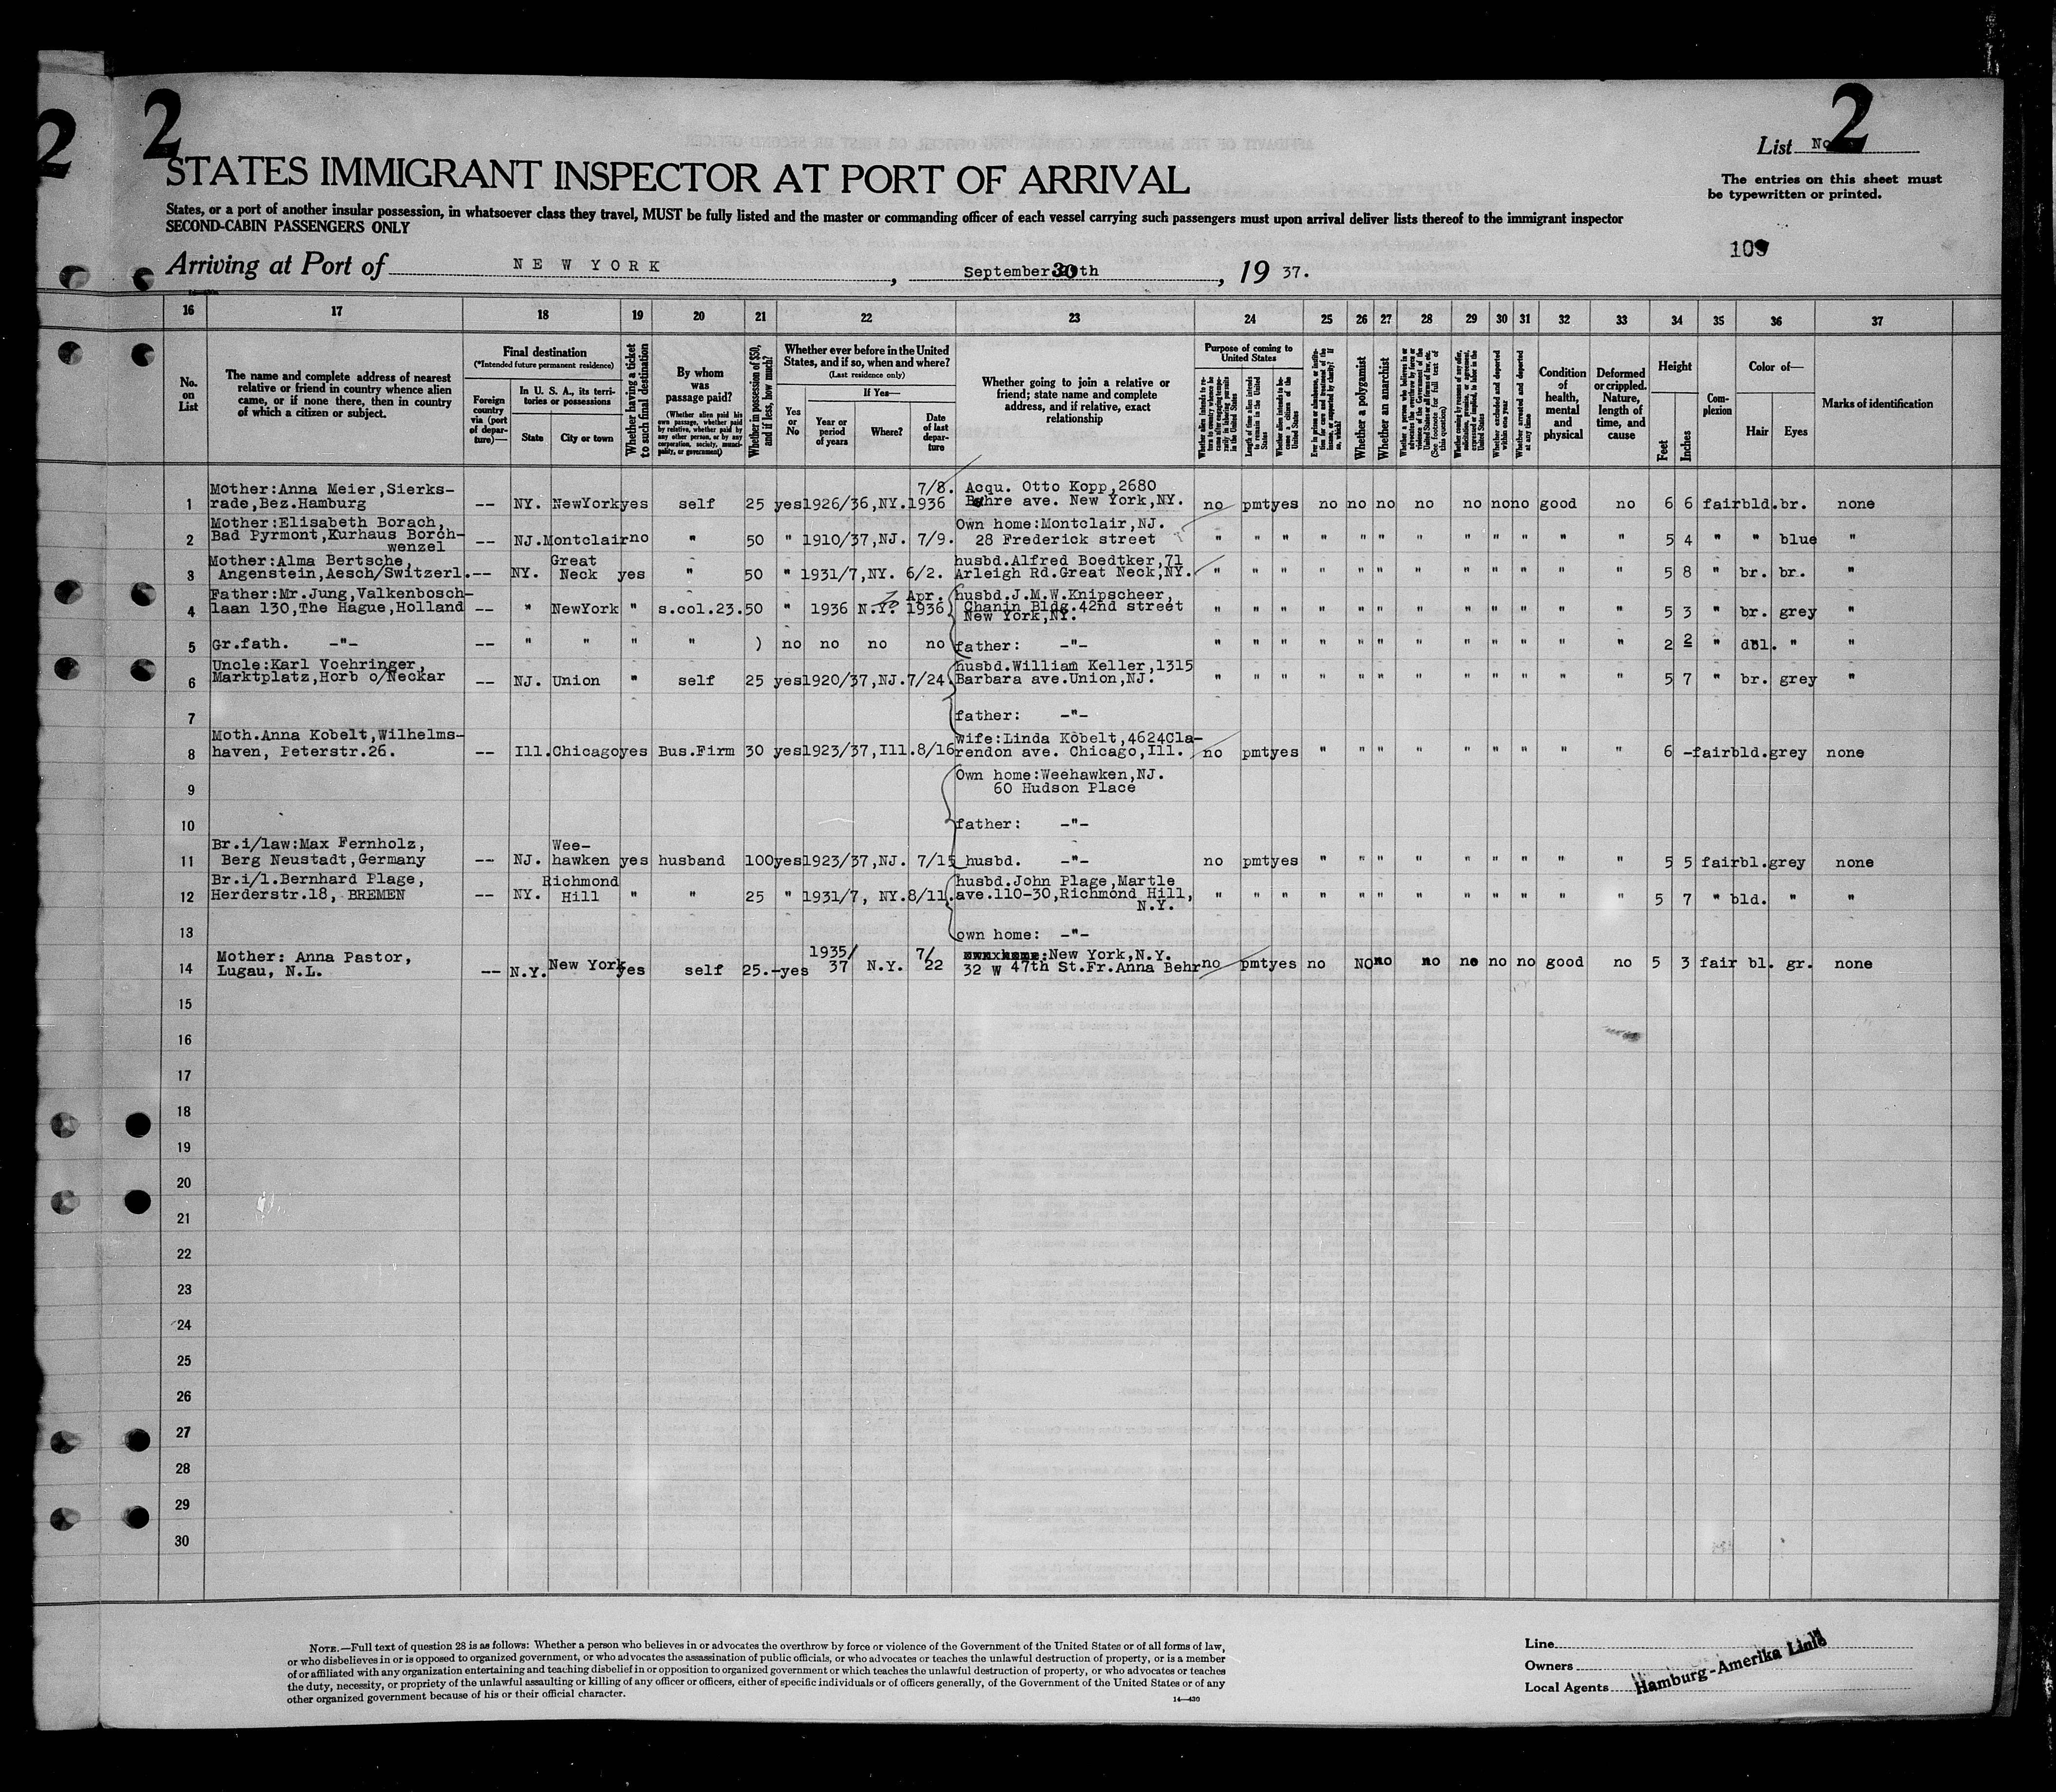 2 2 2
List No.
STATES IMMIGRANT INSPECTOR AT PORT OF ARRIVAL
The entries on this sheet must
be typewritten or printed.
States, or a port of another insular possession, in whatsoever class they travel, MUST be fully listed and the master or commanding officer of each vessel carrying such passengers must upon arrival deliver lists thereof to the immigrant inspector
SECOND-CABIN PASSENGERS ONLY
109
Arriving at Port of NEW YORK, September 30th, 1937.
16 17 18 19 20 21 22 23 24 25 26 27 28 29 30 31 32 33 34 35 36 37
No. on List
The name and complete address of nearest relative or friend in country whence alien came, or if none there, then in country of which a citizen or subject.
Final destination
(*Intended future permanent residence)
Foreign country via (port of departure)—
In U. S. A., its territories or possessions
State
City or town
Whether having a ticket to such final destination
By whom was passage paid?
(Whether alien paid his own passage, whether paid by relative, whether paid by any other person, or by any corporation, society, municipality, or government)
Whether in possession of $50, and if less, how much?
Whether ever before in the United States, and if so, when and where?
(Last residence only)
Yes or No
If Yes—
Year or period of years
Where?
Date of last departure
Whether going to join a relative or friend; state name and complete address, and if relative, exact relationship
Purpose of coming to United States
Length of time alien intends to remain in the United States
Whether alien intends to become a citizen of the United States
Whether a polygamist
Whether an anarchist
Whether excluded and deported within one year
Whether arrested and deported at any time
Condition of health, mental and physical
Deformed or crippled. Nature, length of time, and cause
Height
Feet
Inches
Complexion
Color of—
Hair
Eyes
Marks of identification
1 Mother:Anna Meier,Sierks-
rade,Bez.Hamburg -- NY. NewYork yes self 25 yes 1926/36,NY. 7/8. 1936 Acqu. Otto Kopp,2680
Buhre ave. New York,NY. no pmt yes no no no no no no no good no 6 6 fair bld. br. none
2 Mother:Elisabeth Borach,
Bad Pyrmont,Kurhaus Borch-
wenzel -- NJ. Montclair no " 50 " 1910/37,NJ. 7/9. Own home:Montclair,NJ.
28 Frederick street " " " " " " " " " " " " 5 4 " " blue "
3 Mother:Alma Bertsche,
Angenstein,Aesch/Switzerl. -- NY. Great Neck yes " 50 " 1931/7,NY. 6/2. husbd.Alfred Boedtker,71
Arleigh Rd.Great Neck,NY. " " " " " " " " " " " " 5 8 " br. br. "
4 Father:Mr.Jung,Valkenbosch-
laan 130,The Hague,Holland -- " NewYork " s.col.23. 50 " 1936 N.Y. Apr. 1936 husbd.J.M.W.Knipscheer,
Chanin Bldg.42nd street
New York,NY. " " " " " " " " " " " " 5 3 " br. grey "
5 Gr.fath. -"- -- " " " " ) no no no no father: -"- " " " " " " " " " " " " 2 2 " dbl. " "
6 Uncle:Karl Voehringer,
Marktplatz,Horb o/Neckar -- NJ. Union " self 25 yes 1920/37,NJ. 7/24 husbd.William Keller,1315
Barbara ave.Union,NJ. " " " " " " " " " " " " 5 7 " br. grey "
7 father: -"-
8 Moth.Anna Kobelt,Wilhelms-
haven, Peterstr.26. -- Ill. Chicago yes Bus.Firm 30 yes 1923/37,Ill. 8/16 wife:Linda Kobelt,4624Cla-
rendon ave. Chicago,Ill. no pmt yes " " " " " " " " " 6 - fair bld. grey none
9 Own home:Weehawken,NJ.
60 Hudson Place
10 father: -"-
11 Br.i/law:Max Fernholz,
Berg Neustadt,Germany -- NJ. Wee-
hawken yes husband 100 yes 1923/37,NJ. 7/15 husbd. -"- no pmt yes " " " " " " " " " 5 5 fair bl. grey none
12 Br.i/l.Bernhard Plage,
Herderstr.18, BREMEN -- NY. Richmond Hill " " 25 " 1931/7, NY. 8/11. husbd.John Plage,Martle
ave.110-30,Richmond Hill,
N.Y. " " " " " " " " " " " " 5 7 " bld. " "
13 own home: -"-
14 Mother: Anna Pastor,
Lugau, N.L. -- N.Y. New York yes self 25.- yes 1935/37 N.Y. 7/22 New York,N.Y.
32 W 47th St.Fr.Anna Behr no pmt yes no No no no no no no good no 5 3 fair bl. gr. none
15
16
17
18
19
20
21
22
23
24
25
26
27
28
29
30
NOTE.—Full text of question 28 is as follows: Whether a person who believes in or advocates the overthrow by force or violence of the Government of the United States or of all forms of law,
or who disbelieves in or is opposed to organized government, or who advocates the assassination of public officials, or who advocates or teaches the unlawful destruction of property, or is a member
of or affiliated with any organization entertaining and teaching disbelief in or opposition to organized government or which teaches the unlawful destruction of property, or who advocates or teaches
the duty, necessity, or propriety of the unlawful assaulting or killing of any officer or officers, either of specific individuals or of officers generally, of the Government of the United States or of any
other organized government because of his or their official character.
14—430
Line
Owners
Local Agents
Hamburg-Amerika Linie